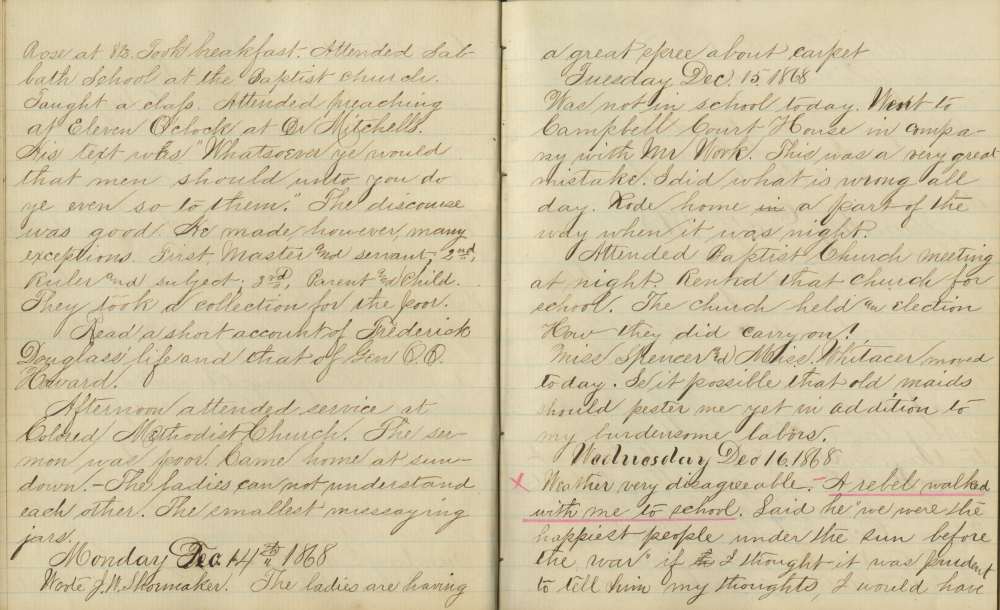 Rose at 8½. Took breakfast. Attended Sab-
bath School at the Baptist church.
Taught a class. Attended preaching
at Eleven O'clock at Dr Mitchells.
His text was "Whatsoever ye would
that men should unto you do
ye even so to them." The discourse
was good. He made however many
exceptions. First Master and servant, 2nd,
Ruler and subject; 3rd, Parent and Child.
They took a collection for the poor.
Read a short account of Frederick
Douglass' life and that of Gen O.O.
Howard.
Afternoon attended service at
Colored Methodist Church. The ser-
mon was poor. Came home at sun-
down. – The ladies can not understand
each other. The smallest messaying
jars.
Monday Dec. 14th 1868
Wrote J.W. Shormaker. The ladies are having
a great spree about carpet
Tuesday Dec. 15 1868
Was not in school today. Went to
Campbell Court House in compa-
ny with Mr Work. This was a very great
mistake. I did what is wrong all
day. Rode home in a part of the
way when it was night.
Attended Baptist Church meeting
at night. Rented that church for
school. The church held an election
How they did carry on!
Miss Spencer and Miss. Whitacer moved
today. Is it possible that old maids
should pester me yet in addition to
my burdensome labors.
Wednesday Dec 16, 1868
x Weather very disagreeable. – A rebel walked
with me to school. Said he "we were the
happiest people under the sun before
the war" if I thought it was prudent
to tell him my thoughts, I would have